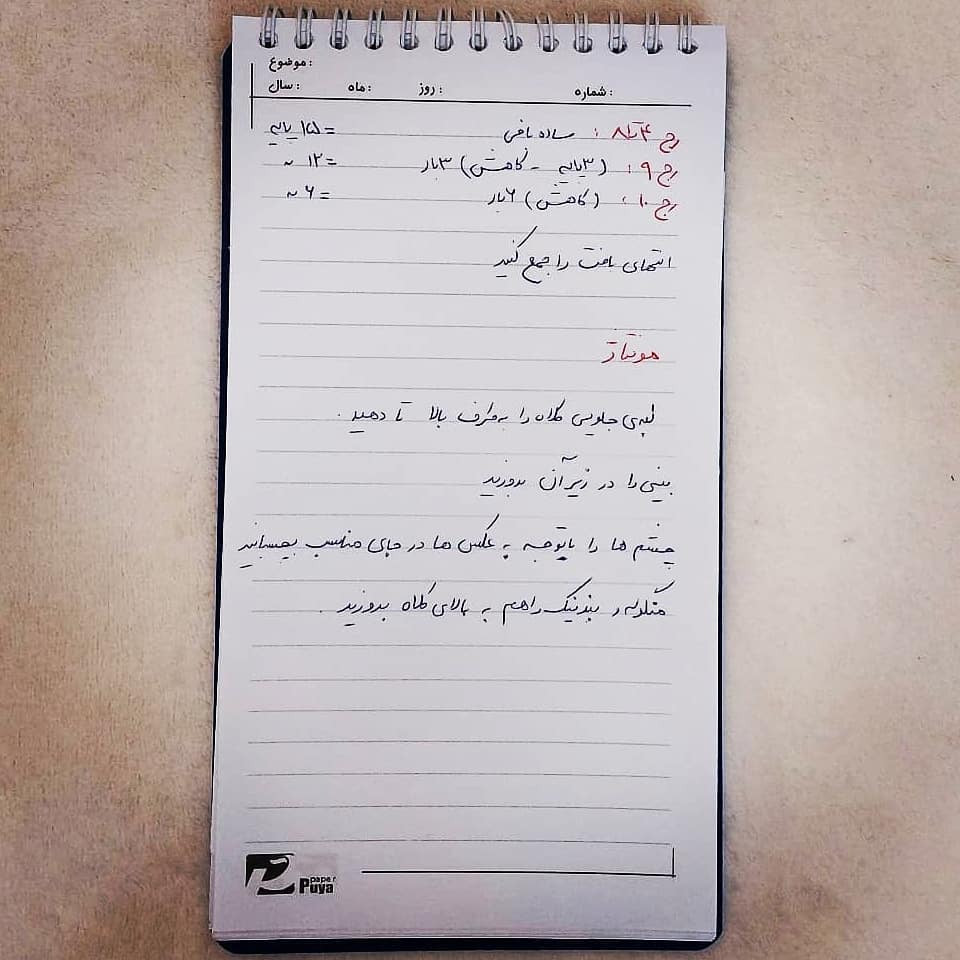 موضوع:
سال: ماه: روز: شماره:
رج ۴ تا ۸: ساده بافی = ۱۵ پایه
رج ۹: (۳ پایه - کاهش) ۳ بار = ۱۲ ~
رج ۱۰: (کاهش) ۶ بار = ۶ ~
انتهای بافت را جمع کنید
مونتاژ
لبه‌ی جلویی کلاه را به طرف بالا تا دهید.
بینی را در زیر آن بدوزید
چشم ها را با توجه به عکس ها در جای مناسب بچسبانید
منگوله و بندینک را هم به بالای کلاه بدوزید.
paper
Puya